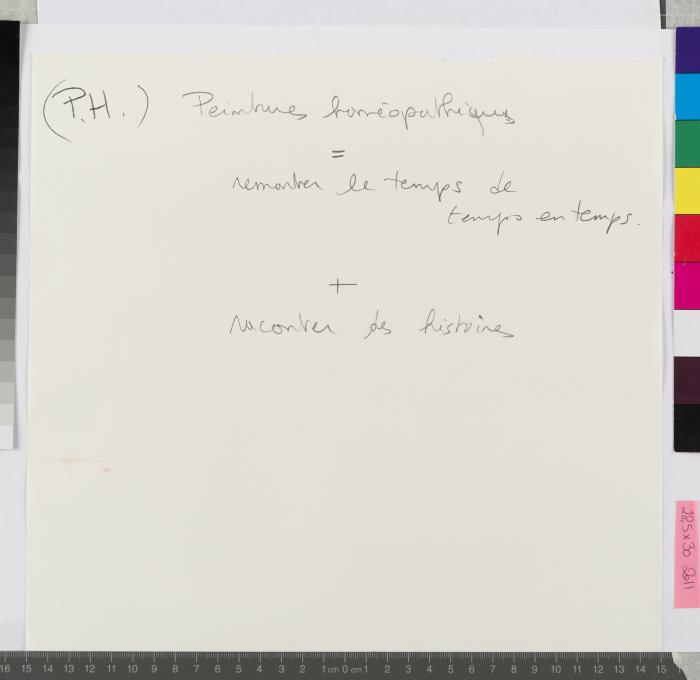 (P.H.) Peintures homéopathiques
=
remonter le temps de
temps en temps.
+
raconter des histoires
28,5 x 30 2011
16 15 14 13 12 11 10 9 8 7 6 5 4 3 2 1 cm 0 cm 1 2 3 4 5 6 7 8 9 10 11 12 13 14 15